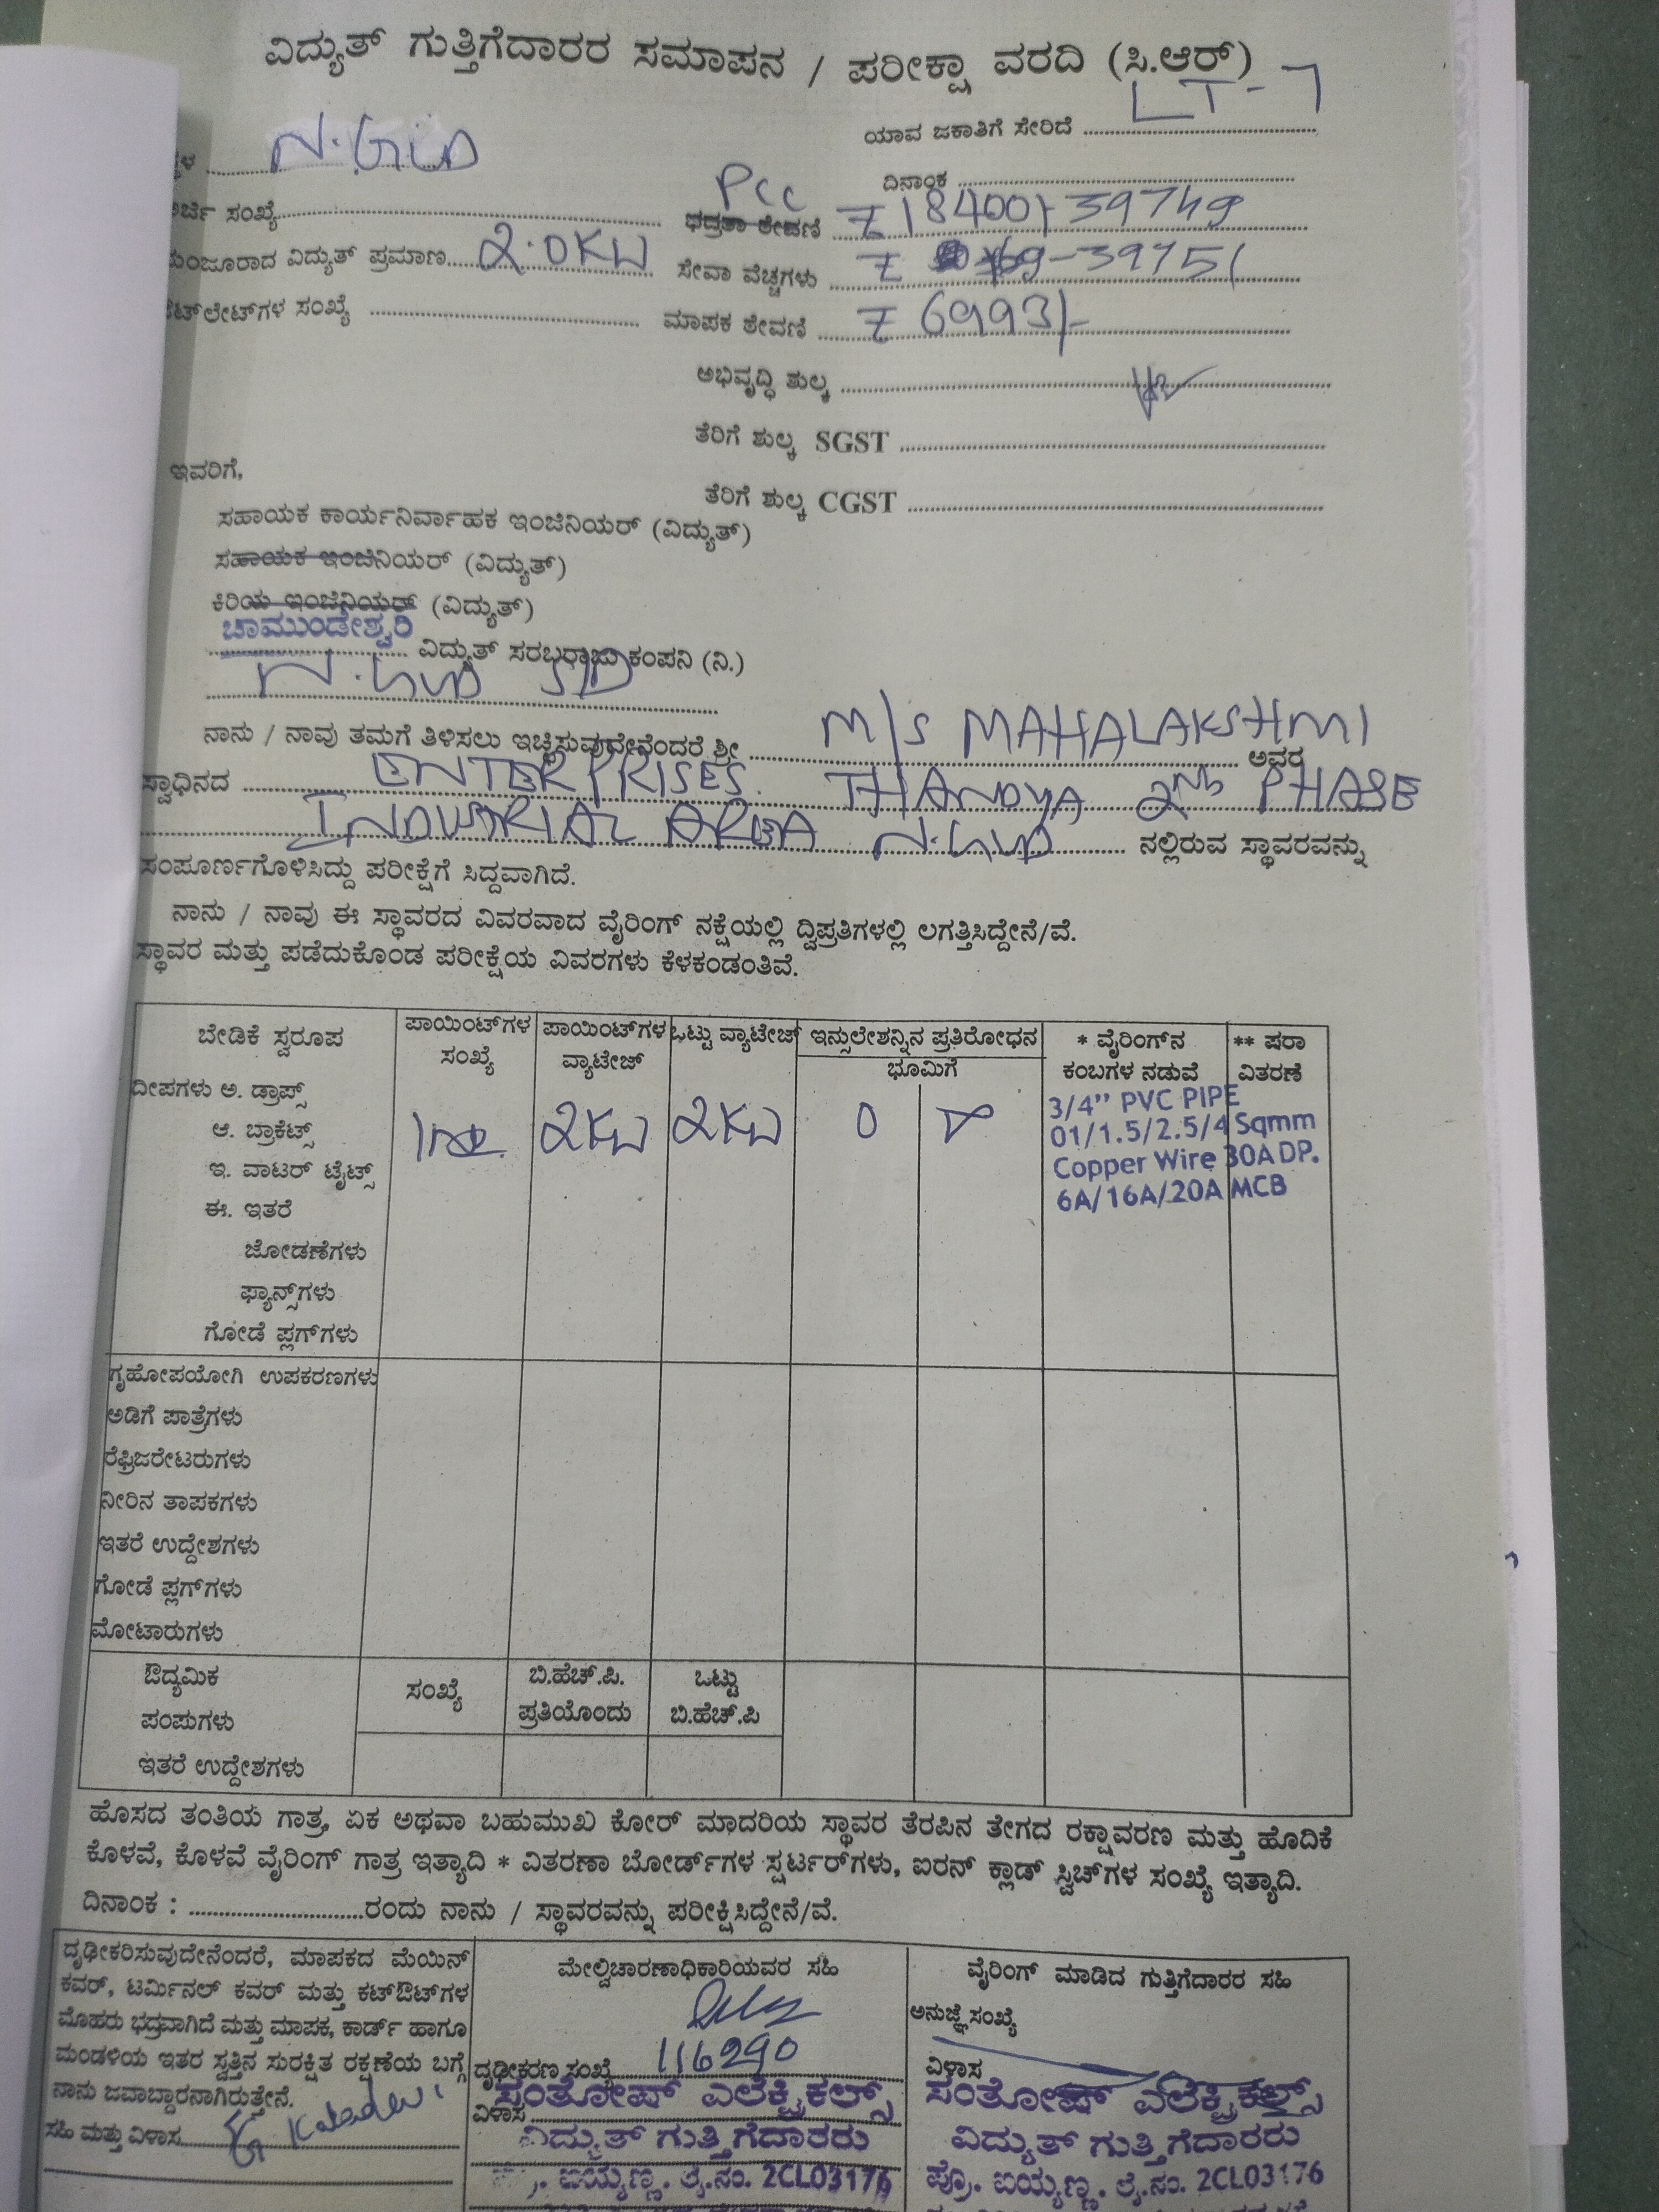 ವಿದ್ಯುತ್ ಗುತ್ತಿಗೆದಾರರ ಸಮಾಪನ / ಪರೀಕ್ಷಾ ವರದಿ (ಸಿ.ಆರ್)
ಯಾವ ಜಕಾತಿಗೆ ಸೇರಿದೆ LT-7
N.Gud
ದಿನಾಂಕ
ಅರ್ಜಿ ಸಂಖ್ಯೆ
PCC
ಭದ್ರತಾ ಠೇವಣಿ ₹ 18400/- 39749
ಮಂಜೂರಾದ ವಿದ್ಯುತ್ ಪ್ರಮಾಣ 2.0KW
ಸೇವಾ ವೆಚ್ಚಗಳು ₹ 39751
ಔಟ್‌ಲೇಟ್‌ಗಳ ಸಂಖ್ಯೆ
ಮಾಪಕ ಠೇವಣಿ ₹ 6993/-
ಅಭಿವೃದ್ಧಿ ಶುಲ್ಕ
ತೆರಿಗೆ ಶುಲ್ಕ SGST
ಇವರಿಗೆ,
ತೆರಿಗೆ ಶುಲ್ಕ CGST
ಸಹಾಯಕ ಕಾರ್ಯನಿರ್ವಾಹಕ ಇಂಜಿನಿಯರ್ (ವಿದ್ಯುತ್)
ಸಹಾಯಕ ಇಂಜಿನಿಯರ್ (ವಿದ್ಯುತ್)
ಕಿರಿಯ ಇಂಜಿನಿಯರ್ (ವಿದ್ಯುತ್)
ಚಾಮುಂಡೇಶ್ವರಿ
ವಿದ್ಯುತ್ ಸರಬರಾಜು ಕಂಪನಿ (ನಿ.)
N.Gud S/D
ನಾನು / ನಾವು ತಮಗೆ ತಿಳಿಸಲು ಇಚ್ಛಿಸುವುದೇನೆಂದರೆ ಶ್ರೀ M/S MAHALAKSHMI ಅವರ
ಸ್ವಾಧಿನದ ENTERPRISES. THANDYA 2nd PHASE
INDUSTRIAL AREA N.Gud ನಲ್ಲಿರುವ ಸ್ಥಾವರವನ್ನು
ಸಂಪೂರ್ಣಗೊಳಿಸಿದ್ದು ಪರೀಕ್ಷೆಗೆ ಸಿದ್ದವಾಗಿದೆ.
ನಾನು / ನಾವು ಈ ಸ್ಥಾವರದ ವಿವರವಾದ ವೈರಿಂಗ್ ನಕ್ಷೆಯಲ್ಲಿ ದ್ವಿಪ್ರತಿಗಳಲ್ಲಿ ಲಗತ್ತಿಸಿದ್ದೇನೆ/ವೆ.
ಸ್ಥಾವರ ಮತ್ತು ಪಡೆದುಕೊಂಡ ಪರೀಕ್ಷೆಯ ವಿವರಗಳು ಕೆಳಕಂಡಂತಿವೆ.
ಬೇಡಿಕೆ ಸ್ವರೂಪ
ಪಾಯಿಂಟ್‌ಗಳ ಸಂಖ್ಯೆ
ಪಾಯಿಂಟ್‌ಗಳ ವ್ಯಾಟೇಜ್
ಒಟ್ಟು ವ್ಯಾಟೇಜ್
ಇನ್ಸುಲೇಶನ್ನಿನ ಪ್ರತಿರೋಧನ
ಭೂಮಿಗೆ
* ವೈರಿಂಗ್‌ನ ಕಂಬಗಳ ನಡುವೆ
** ಷರಾ ವಿತರಣೆ
ದೀಪಗಳು ಅ. ಡ್ರಾಪ್ಸ್
ಆ. ಬ್ರಾಕೆಟ್ಸ್
2KW 2KW 0
3/4" PVC PIPE
01/1.5/2.5/4 Sqmm
Copper Wire 30A DP.
6A/16A/20A MCB
ಇ. ವಾಟರ್ ಟೈಟ್ಸ್
ಈ. ಇತರೆ
ಜೋಡಣೆಗಳು
ಫ್ಯಾನ್ಸ್‌ಗಳು
ಗೋಡೆ ಪ್ಲಗ್‌ಗಳು
ಗೃಹೋಪಯೋಗಿ ಉಪಕರಣಗಳು
ಅಡಿಗೆ ಪಾತ್ರೆಗಳು
ರೆಫ್ರಿಜರೇಟರುಗಳು
ನೀರಿನ ತಾಪಕಗಳು
ಇತರೆ ಉದ್ದೇಶಗಳು
ಗೋಡೆ ಪ್ಲಗ್‌ಗಳು
ಮೋಟಾರುಗಳು
ಔದ್ಯಮಿಕ
ಪಂಪುಗಳು
ಇತರೆ ಉದ್ದೇಶಗಳು
ಸಂಖ್ಯೆ
ಬಿ.ಹೆಚ್.ಪಿ. ಪ್ರತಿಯೊಂದು
ಒಟ್ಟು ಬಿ.ಹೆಚ್.ಪಿ
ಹೊಸದ ತಂತಿಯ ಗಾತ್ರ, ಏಕ ಅಥವಾ ಬಹುಮುಖ ಕೋರ್ ಮಾದರಿಯ ಸ್ಥಾವರ ತೆರಪಿನ ತೇಗದ ರಕ್ಷಾವರಣ ಮತ್ತು ಹೊದಿಕೆ
ಕೊಳವೆ, ಕೊಳವೆ ವೈರಿಂಗ್ ಗಾತ್ರ ಇತ್ಯಾದಿ * ವಿತರಣಾ ಬೋರ್ಡ್‌ಗಳ ಸ್ಟರ್ಟರ್‌ಗಳು, ಐರನ್ ಕ್ಲಾಡ್ ಸ್ವಿಚ್‌ಗಳ ಸಂಖ್ಯೆ ಇತ್ಯಾದಿ.
ದಿನಾಂಕ : ರಂದು ನಾನು / ಸ್ಥಾವರವನ್ನು ಪರೀಕ್ಷಿಸಿದ್ದೇನೆ/ವೆ.
ದೃಢೀಕರಿಸುವುದೇನೆಂದರೆ, ಮಾಪಕದ ಮೆಯಿನ್
ಕವರ್, ಟರ್ಮಿನಲ್ ಕವರ್ ಮತ್ತು ಕಟ್‌ಔಟ್‌ಗಳ
ಮೊಹರು ಭದ್ರವಾಗಿದೆ ಮತ್ತು ಮಾಪಕ, ಕಾರ್ಡ್ ಹಾಗೂ
ಮಂಡಳಿಯ ಇತರ ಸ್ವತ್ತಿನ ಸುರಕ್ಷಿತ ರಕ್ಷಣೆಯ ಬಗ್ಗೆ
ನಾನು ಜವಾಬ್ದಾರನಾಗಿರುತ್ತೇನೆ.
ಸಹಿ ಮತ್ತು ವಿಳಾಸ
ಮೇಲ್ವಿಚಾರಣಾಧಿಕಾರಿಯವರ ಸಹಿ
ದೃಢೀಕರಣ ಸಂಖ್ಯೆ 116290
ವಿಳಾಸ
ಸಂತೋಷ್ ಎಲೆಕ್ಟ್ರಿಕಲ್ಸ್
ವಿದ್ಯುತ್ ಗುತ್ತಿಗೆದಾರರು
ಐಯ್ಯಣ್ಣ. ಲೈ.ನಂ. 2CL03176
ವೈರಿಂಗ್ ಮಾಡಿದ ಗುತ್ತಿಗೆದಾರರ ಸಹಿ
ಅನುಜ್ಞೆ ಸಂಖ್ಯೆ
ವಿಳಾಸ
ಸಂತೋಷ್ ಎಲೆಕ್ಟ್ರಿಕಲ್ಸ್
ವಿದ್ಯುತ್ ಗುತ್ತಿಗೆದಾರರು
ಪ್ರೊ. ಐಯ್ಯಣ್ಣ. ಲೈ.ನಂ. 2CL03176